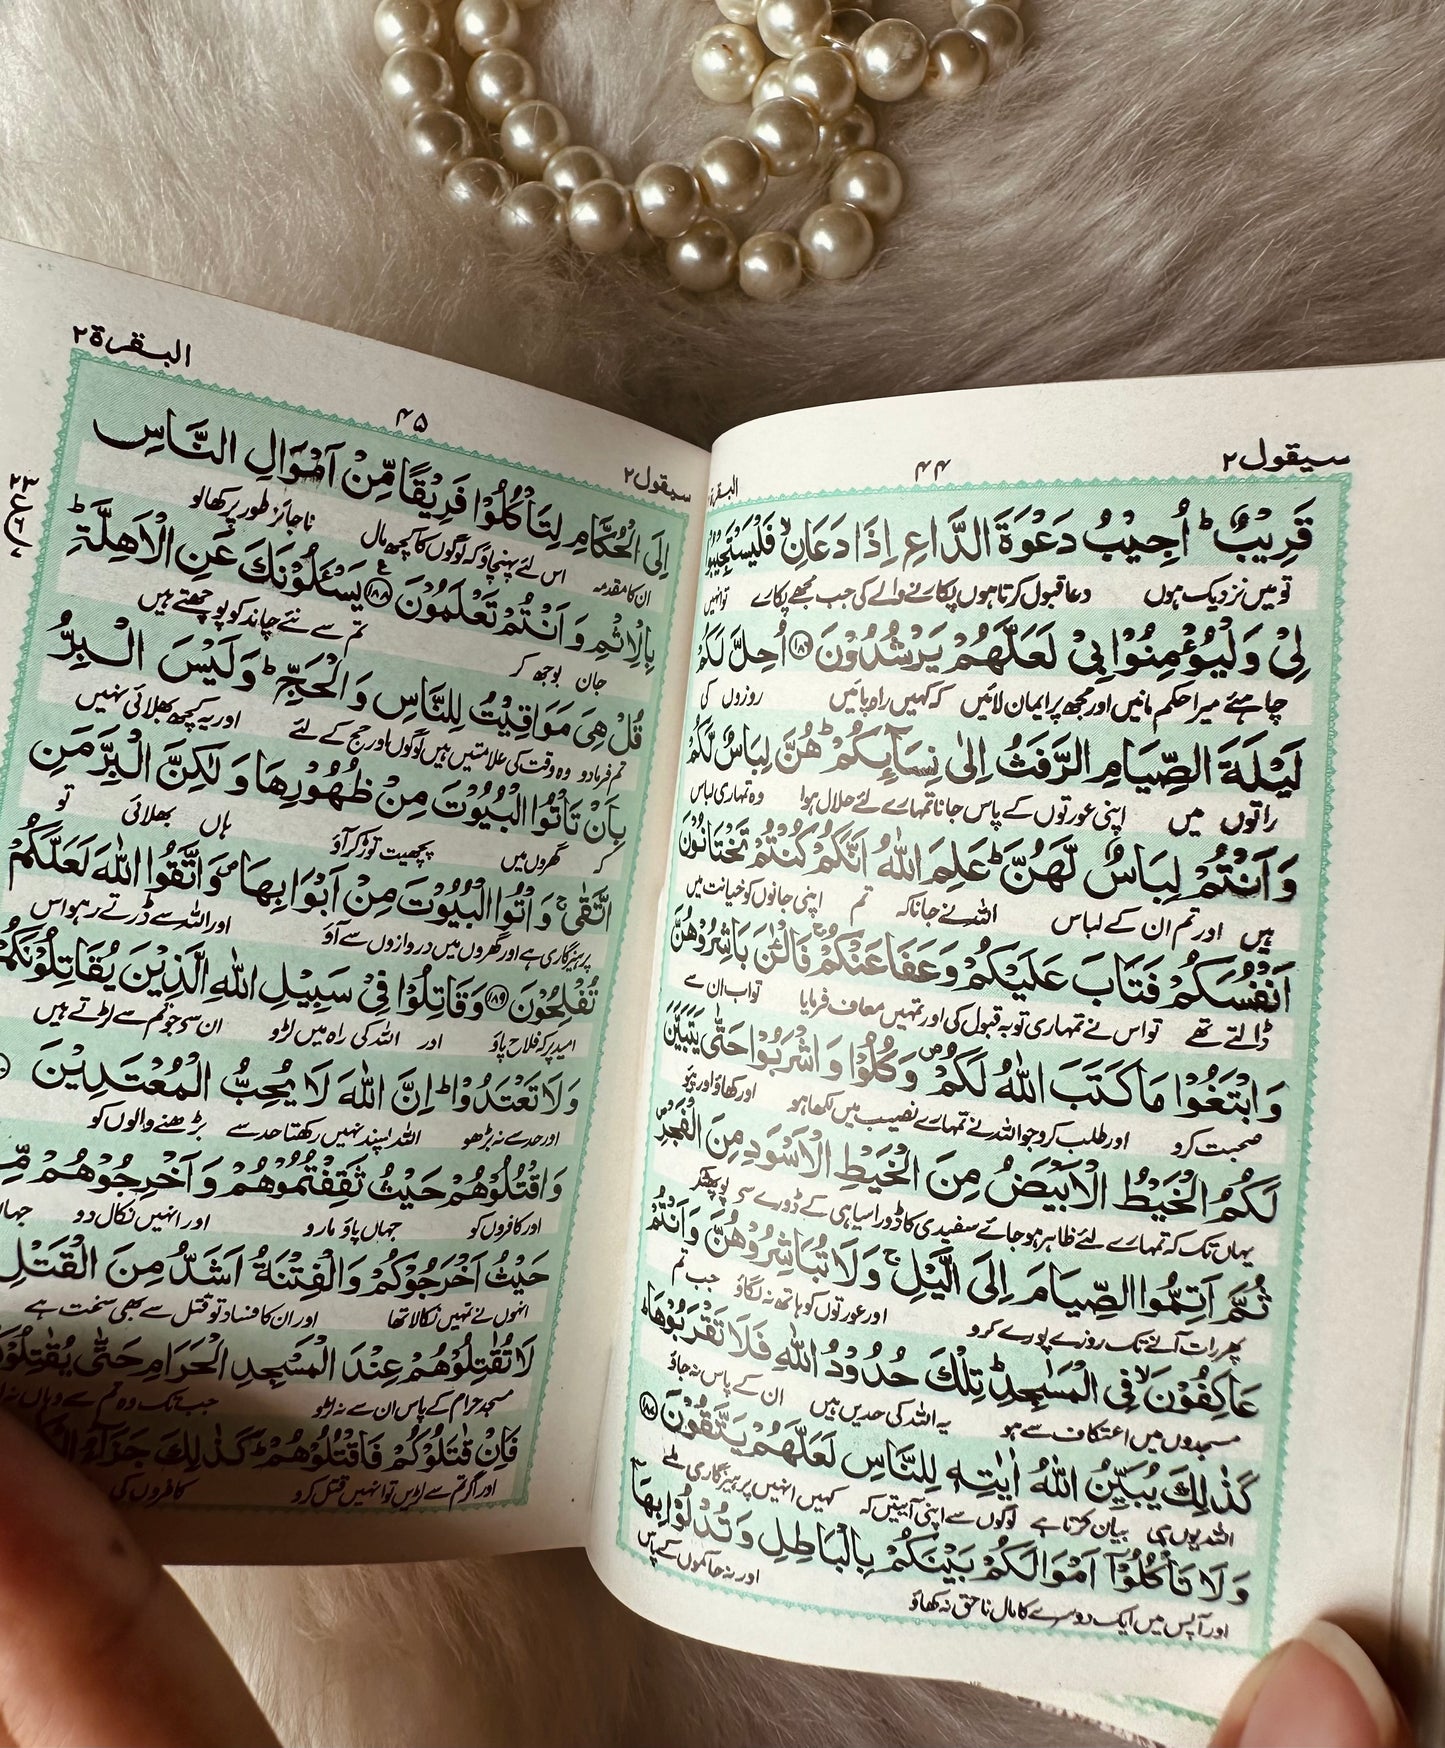 سیقول ٢
۴۴
البقرة
قَرِيْبٌ ؕ اُجِيْبُ دَعْوَةَ الدَّاعِ اِذَا دَعَانِ ۙ فَلْيَسْتَجِيْبُوْا
تو میں نزدیک ہوں دعا قبول کرتا ہوں پکارنے والے کی جب مجھے پکارے تو انہیں
لِيْ وَلْيُؤْمِنُوْا بِيْ لَعَلَّهُمْ يَرْشُدُوْنَ ۝۱۸۶ اُحِلَّ لَكُمْ
چاہئے میرا حکم مانیں اور مجھ پر ایمان لائیں کہ کہیں راہ پائیں روزوں کی
لَيْلَةَ الصِّيَامِ الرَّفَثُ اِلٰى نِسَآئِكُمْ ؕ هُنَّ لِبَاسٌ لَّكُمْ
راتوں میں اپنی عورتوں کے پاس جانا تمہارے لئے حلال ہوا وہ تمہاری لباس
وَ اَنْتُمْ لِبَاسٌ لَّهُنَّ ؕ عَلِمَ اللّٰهُ اَنَّكُمْ كُنْتُمْ تَخْتَانُوْنَ
ہیں اور تم ان کے لباس اللہ نے جانا کہ تم اپنی جانوں کو خیانت میں
اَنْفُسَكُمْ فَتَابَ عَلَيْكُمْ وَعَفَا عَنْكُمْ ۚ فَالْـٰٔنَ بَاشِرُوْهُنَّ
ڈالتے تھے تو اس نے تمہاری توبہ قبول کی اور تمہیں معاف فرمایا تو اب ان سے
وَ ابْتَغُوْا مَا كَتَبَ اللّٰهُ لَكُمْ ۪ وَ كُلُوْا وَ اشْرَبُوْا حَتّٰى يَتَبَيَّنَ
صحبت کرو اور طلب کرو جو اللہ نے تمہارے نصیب میں لکھا ہو اور کھاؤ اور پیو
لَكُمُ الْخَيْطُ الْاَبْيَضُ مِنَ الْخَيْطِ الْاَسْوَدِ مِنَ الْفَجْرِ ۪
یہاں تک کہ تمہارے لئے ظاہر ہو جائے سفیدی کا ڈورا سیاہی کے ڈورے سے پو پھٹکر
ثُمَّ اَتِمُّوا الصِّيَامَ اِلَى الَّيْلِ ۚ وَ لَا تُبَاشِرُوْهُنَّ وَ اَنْتُمْ
پھر رات آنے تک روزے پورے کرو اور عورتوں کو ہاتھ نہ لگاؤ جب تم
عَاكِفُوْنَ ۙ فِي الْمَسٰجِدِ ؕ تِلْكَ حُدُوْدُ اللّٰهِ فَلَا تَقْرَبُوْهَا ؕ
مسجدوں میں اعتکاف سے ہو یہ اللہ کی حدیں ہیں ان کے پاس نہ جاؤ
كَذٰلِكَ يُبَيِّنُ اللّٰهُ اٰيٰتِهٖ لِلنَّاسِ لَعَلَّهُمْ يَتَّقُوْنَ ۝۱۸۷
اللہ یوں ہی بیان کرتا ہے لوگوں سے اپنی آیتیں کہ کہیں انہیں پرہیزگاری ملے
وَ لَا تَاْكُلُوْۤا اَمْوَالَكُمْ بَيْنَكُمْ بِالْبَاطِلِ وَ تُدْلُوْا بِهَاۤ
اور آپس میں ایک دوسرے کا مال ناحق نہ کھاؤ اور نہ حاکموں کے پاس
سیقول ٢
۴۵
البقرة ٢
اِلَى الْحُكَّامِ لِتَاْكُلُوْا فَرِيْقًا مِّنْ اَمْوَالِ النَّاسِ
ان کا مقدمہ اس لئے پہنچاؤ کہ لوگوں کا کچھ مال ناجائز طور پر کھا لو
بِالْاِثْمِ وَ اَنْتُمْ تَعْلَمُوْنَ ۝۱۸۸ ع يَسْـَٔلُوْنَكَ عَنِ الْاَهِلَّةِ ؕ
جان بوجھ کر تم سے نئے چاند کو پوچھتے ہیں
٢٣
ع
قُلْ هِيَ مَوَاقِيْتُ لِلنَّاسِ وَالْحَجِّ ؕ وَلَيْسَ الْبِرُّ
تم فرما دو وہ وقت کی علامتیں ہیں لوگوں اور حج کے لئے اور یہ کچھ بھلائی نہیں
بِاَنْ تَاْتُوا الْبُيُوْتَ مِنْ ظُهُوْرِهَا وَ لٰكِنَّ الْبِرَّ مَنِ
کہ گھروں میں پچھیت توڑ کر آؤ ہاں بھلائی تو
اتَّقٰى ۚ وَ اْتُوا الْبُيُوْتَ مِنْ اَبْوَابِهَا ۪ وَ اتَّقُوا اللّٰهَ لَعَلَّكُمْ
پرہیزگاری ہے اور گھروں میں دروازوں سے آؤ اور اللہ سے ڈرتے رہو اس
تُفْلِحُوْنَ ۝۱۸۹ وَ قَاتِلُوْا فِيْ سَبِيْلِ اللّٰهِ الَّذِيْنَ يُقَاتِلُوْنَكُمْ
امید پر کہ فلاح پاؤ اور اللہ کی راہ میں لڑو ان سے جو تم سے لڑتے ہیں
وَلَا تَعْتَدُوْا ؕ اِنَّ اللّٰهَ لَا يُحِبُّ الْمُعْتَدِيْنَ
اور حد سے نہ بڑھو اللہ پسند نہیں رکھتا حد سے بڑھنے والوں کو
وَ اقْتُلُوْهُمْ حَيْثُ ثَقِفْتُمُوْهُمْ وَ اَخْرِجُوْهُمْ مِّنْ
اور کافروں کو جہاں پاؤ مارو اور انہیں نکال دو جہاں
حَيْثُ اَخْرَجُوْكُمْ وَ الْفِتْنَةُ اَشَدُّ مِنَ الْقَتْلِ
انہوں نے تمہیں نکالا تھا اور ان کا فساد تو قتل سے بھی سخت ہے
لَا تُقٰتِلُوْهُمْ عِنْدَ الْمَسْجِدِ الْحَرَامِ حَتّٰى يُقٰتِلُوْ
مسجد حرام کے پاس ان سے نہ لڑو جب تک وہ تم سے وہاں نہ
فَاِنْ قٰتَلُوْكُمْ فَاقْتُلُوْهُمْ ؕ كَذٰلِكَ جَزَآءُ
اور اگر تم سے لڑیں تو انہیں قتل کرو کافروں کی